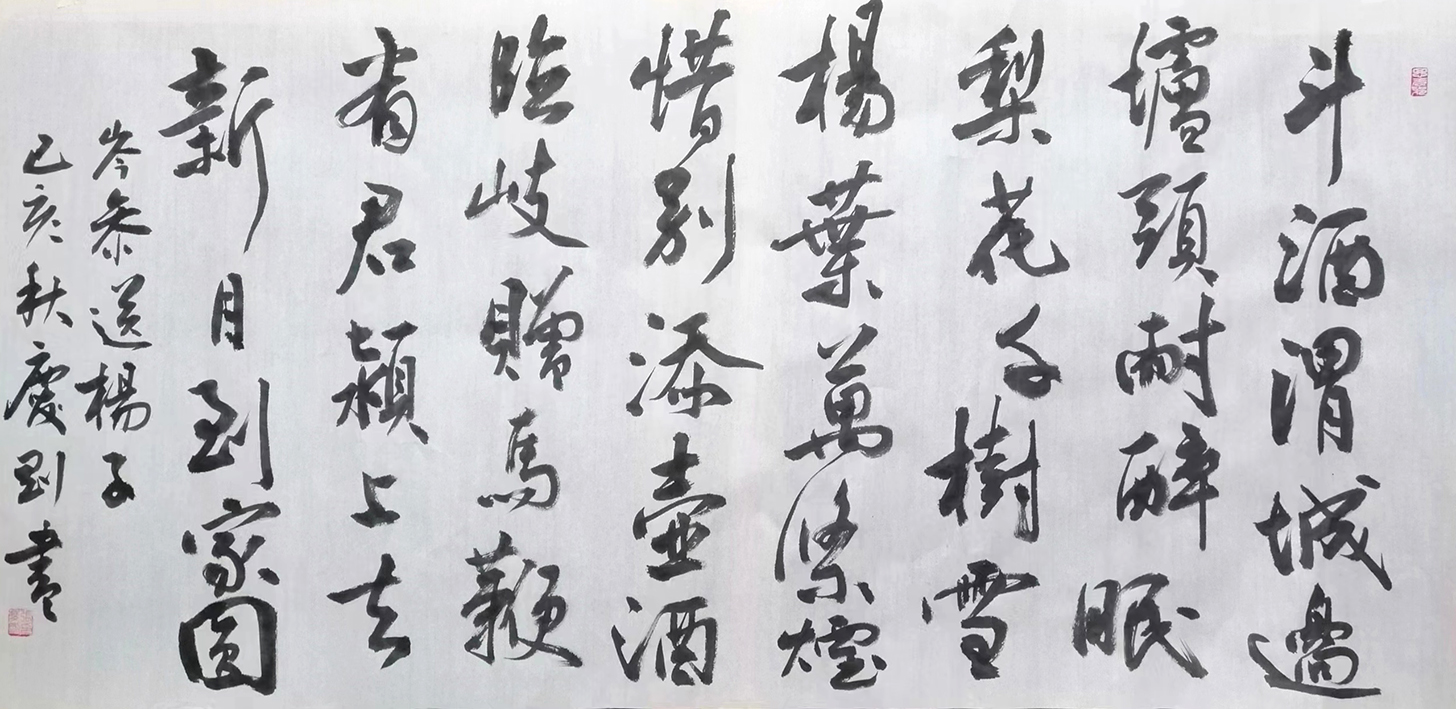 斗酒渭城邊
壚頭耐醉眠
梨花千樹雪
楊葉萬條煙
惜別添壺酒
臨岐贈馬鞭
看君潁上去
新月到家圓
岑參送楊子
己亥秋慶剛書